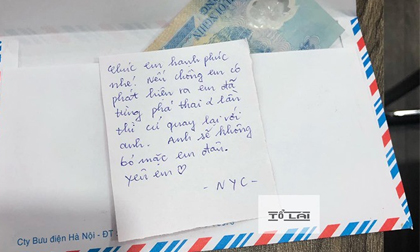 Chúc em hạnh phúc
nhé! Nếu chồng em có
phát hiện ra em đã
từng phá thai 2 lần
thì cứ quay lại với
anh. Anh sẽ không
bỏ mặc em đâu.
Yêu em ♡
- NYC -
TỐ LAI
Cty Bưu điện Hà Nội - ĐT